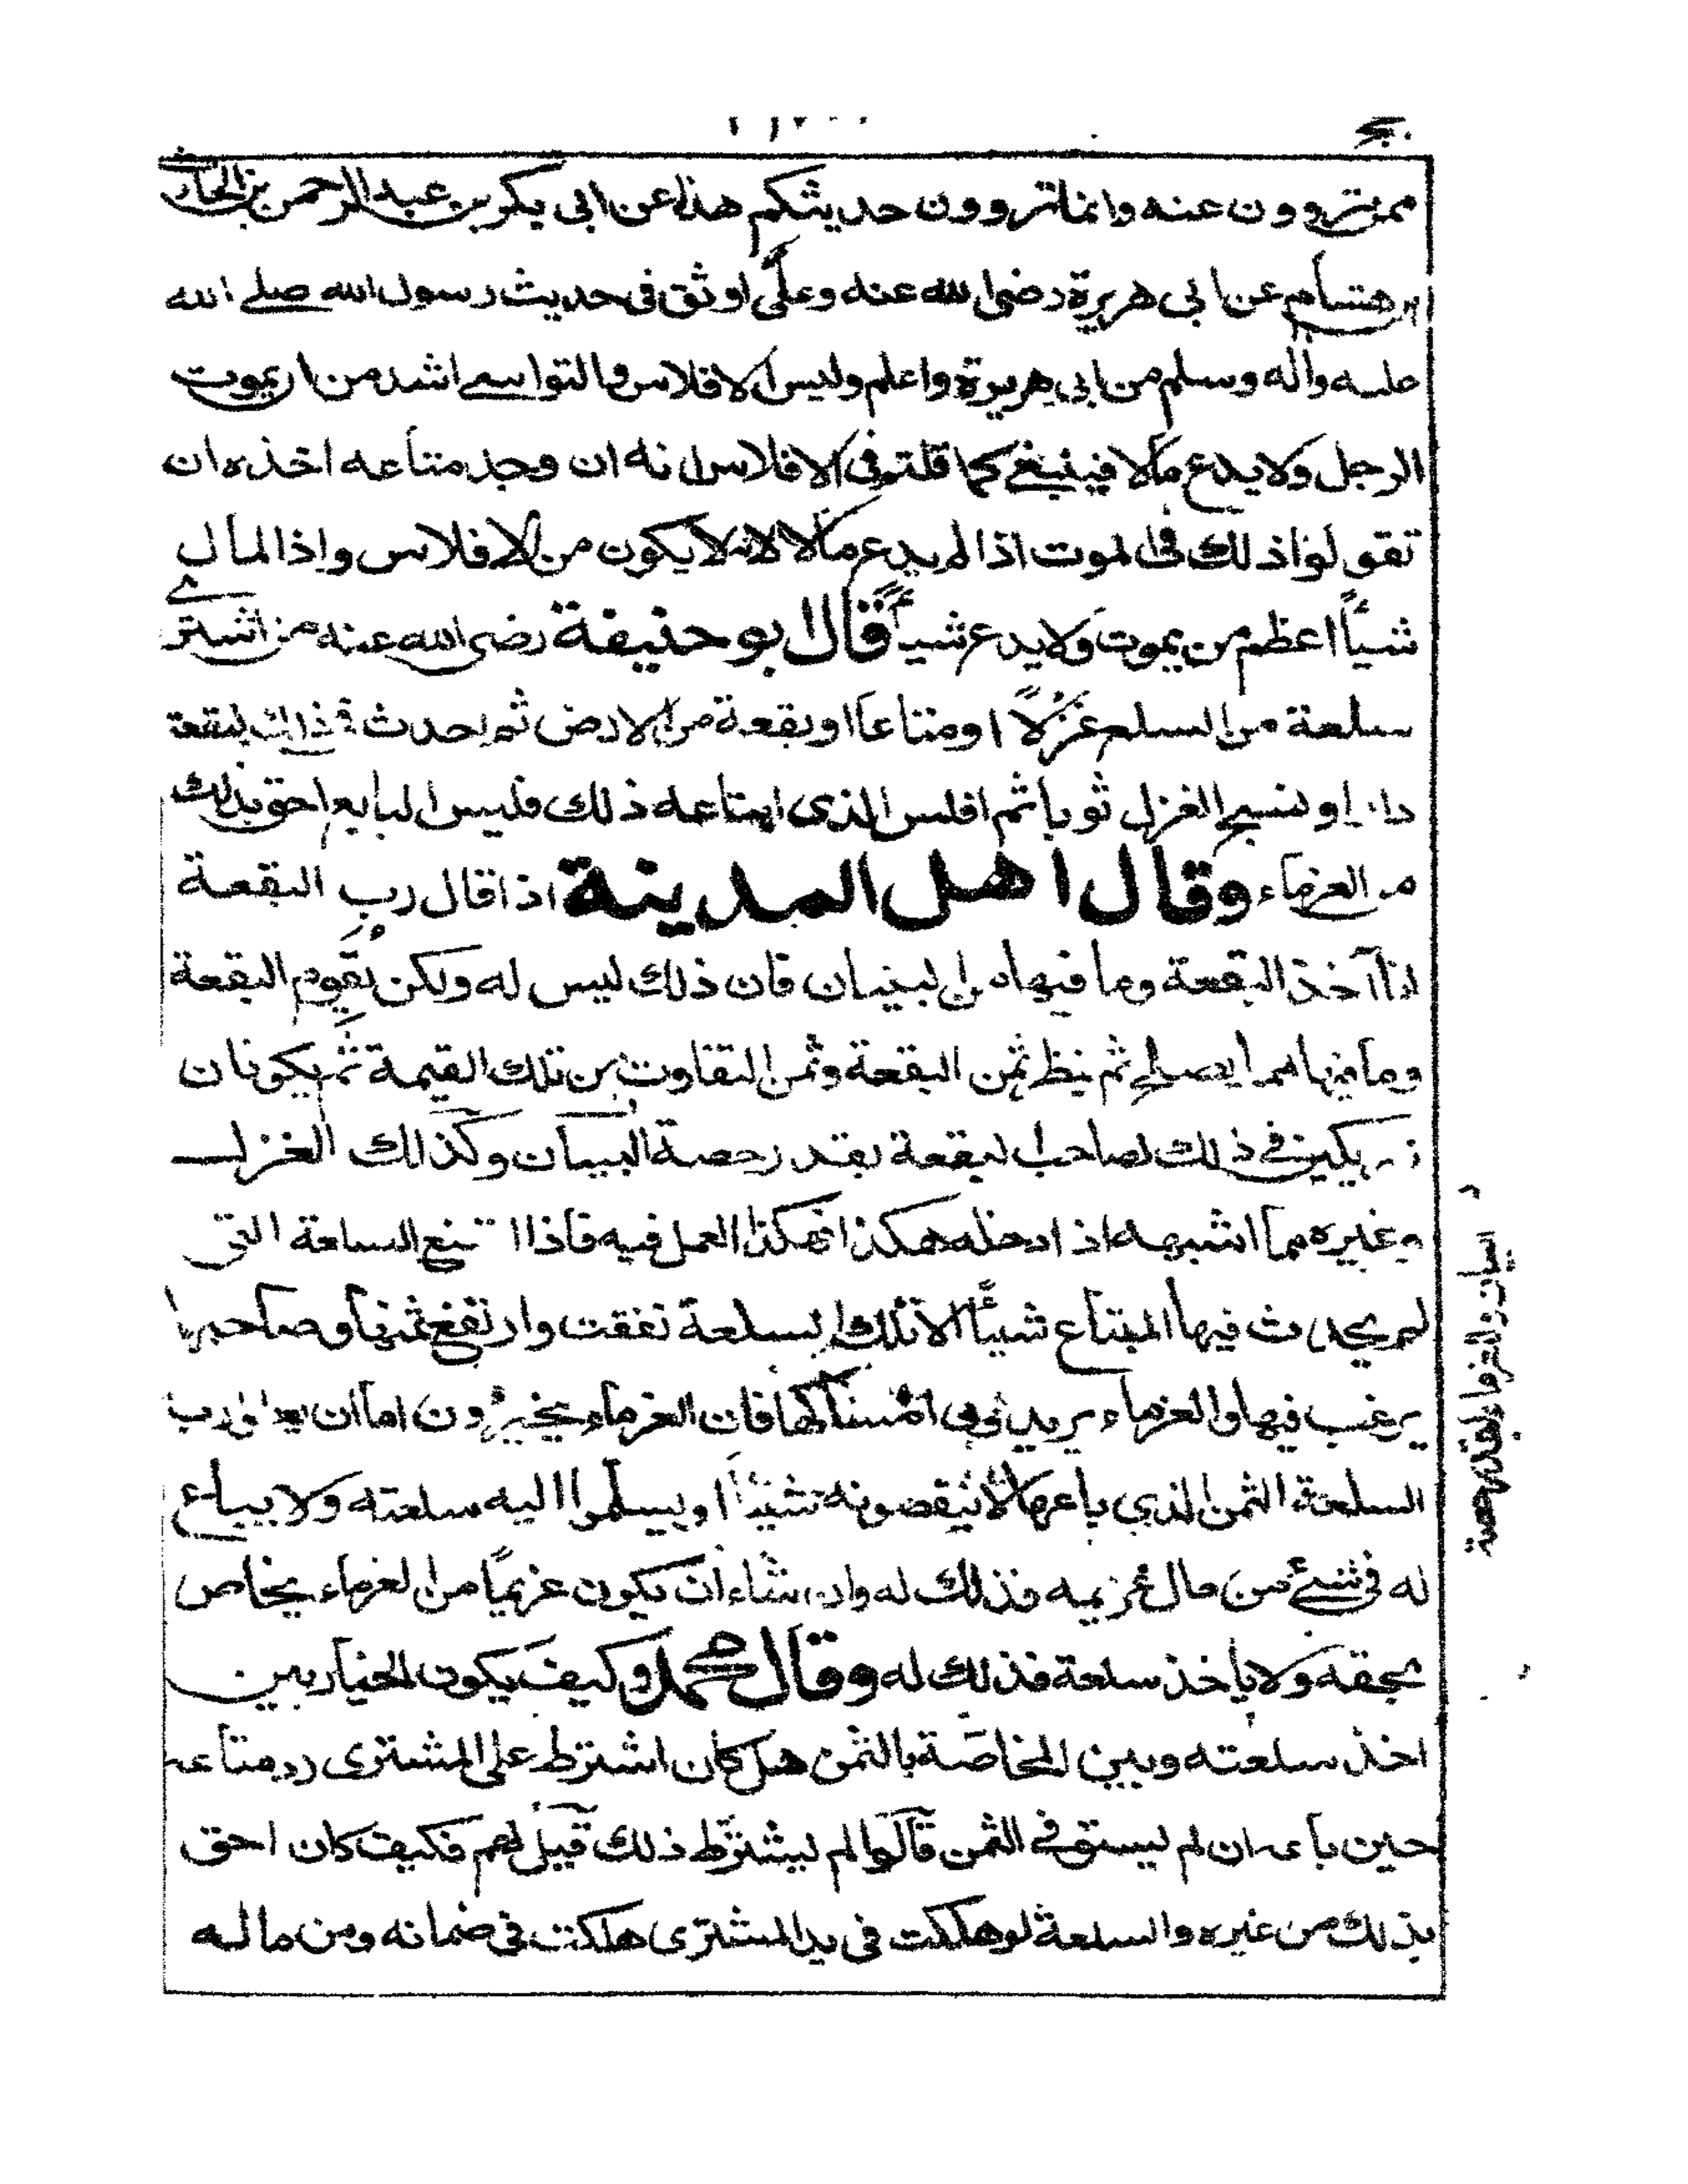 ممن تروون عنه وانما تروون حديثكم هذا عن ابي بكر بن عبد الرحمن بن الحارث
بن هشام عن ابي هريرة رضي الله عنه وعلي اوثق في حديث رسول الله صلے الله
عليه واله وسلم من ابي هريرة واعلم وليس الافلاس والتواسے اشد من ان يموت
الرجل ولا يدع مالا فينبغي كما قلتم في الافلاس انه ان وجد متاعه اخذه ان
تقولوا ذلك في الموت اذا لم يدع مالا لانه لا يكون من الافلاس واذا المال
شيأً اعظم من يموت ولا يدع شيأً قال ابو حنيفة رضي الله عنه من اشترے
سلعة من السلع غزلاً او متاعا او بقعة من الارض ثم احدث في ذلك البقعة
دارا او لنسج الغزل ثوبا ثم افلس الذي ابتاعه ذلك فليس البايع احق بذلك
من الغرماء وقال اهل المدينة اذا قال رب البقعة
انا آخذ البقعة وما فيها من البنيان فان ذلك ليس له ولكن تُقَوم البقعة
وما فيها مما يصلح ثم ينظر ثمن البقعة وثمن التفاوت من تلك القيمة ثم يكونان
شريكين في ذلك لصاحب البقعة بقدر حصة البنيان وكذالك الغزل
وغيره مما اشبهه اذا دخله هكذا العمل فيه فاذا السلعة التي
لم يحدث فيها المبتاع شيأً الا تلك السلعة نفقت وارتفع ثمنها وصاحبها
يرغب فيها والغرماء يريدون امساكها فان الغرماء يخيرون اما ان يعطوا رب
السلعة الثمن الذي باعها لا ينقصونه شيئاً او يسلموا اليه سلعته ولا يباع
له في شئ من مال غريمه فذلك له وان شاء ان يكون غريماً من الغرماء يحاص
بحقه ولا يأخذ سلعة فذلك له وقال محمد وكيف يكون الخيار بين
اخذ سلعته وبين المخاصة بالثمن هل كان اشترط على المشترى رد متاعه
حين باعه ان لم يستوفي الثمن قالوا لم يشترط ذلك قيل لهم فكيف كان احق
بذلك من غيره والسلعة لو هلكت في يد المشترى هلكت في ضمانه ومن ماله